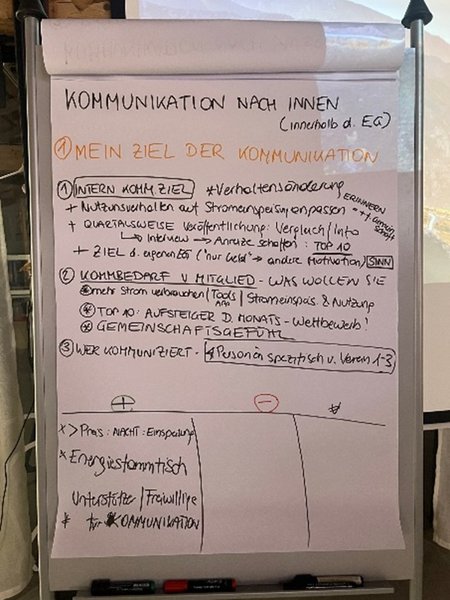 KOMMUNIKATION NACH INNEN
(innerhalb d. EG)
① MEIN ZIEL DER KOMMUNIKATION
① INTERN KOMM.ZIEL *Verhaltensänderung
ERINNERN
+ Nutzungsverhalten auf Stromeinspeisung anpassen
+ QUARTALSWEISE Veröffentlichung: Vergleich/Info
↳ Interview → Anreize schaffen: TOP 10
+ ZIEL d. eigenen EG ("nur Geld" → andere Motivation) SINN
② KOMMBEDARF V MITGLIED - WAS WOLLEN SIE
mehr Strom verbrauchen/Tools/Stromeinspeis. & Nutzung
APP
* TOP 10: AUFSTEIGER D. MONATS - Wettbewerb!
* GEMEINSCHAFTSGEFÜHL
③ WER KOMMUNIZIERT - Person spezifisch v. Verein 1-3
+ -
* > Preis: NACHT: Einspeisung
* Energiestammtisch
Unterstützer/Freiwillige
* für KOMMUNIKATION